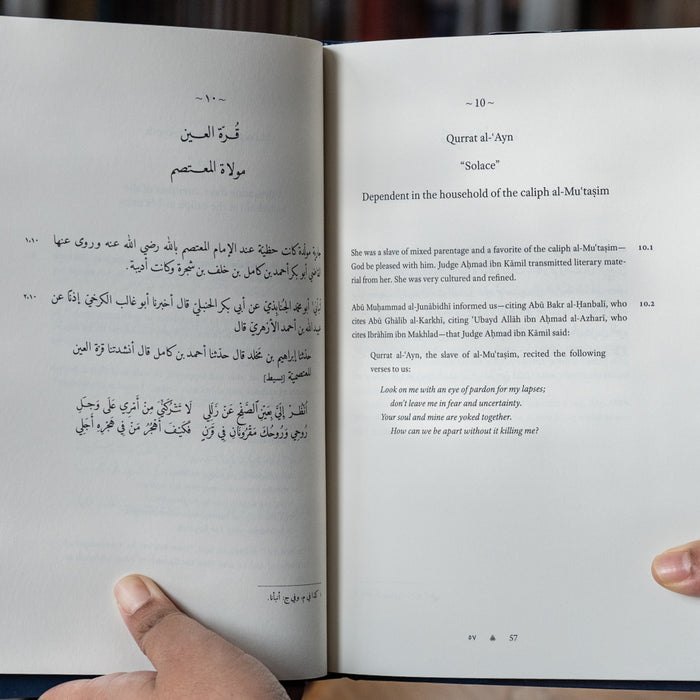 ~١٠~
قُرّة العـين
مولاة المعـتصم
١،١٠
مولّدة كانت حظيّة عند الإمام المعتصم بالله رضي الله عنه وروى عنها
أبو بكر أحمد بن كامل بن خلف بن شجرة وكانت أديبة.
٢،١٠
أبو محمد الجُنابِذيّ عن أبي بكر الحنبليّ قال أخبرنا أبو غالب الكرخيّ إذنًا عن
الله بن أحمد الأزهريّ قال
حدّثنا إبراهيم بن مَخلد قال حدّثنا أحمد بن كامل قال أنشدتنا قرّة العين
المعتصميّة [بسيط]
اُنْظُرْ إليَّ بِعَيْنِ ٱلصَّفْحِ عَنْ زَلَلِي لَا تَتْرُكَنِّي مِنَ أَمْرِي عَلَى وَجَلِ
رُوحِي وَرُوحُكَ مَقْرُونَانِ فِي قَرَنٍ فَكَيْفَ أَهْجُرُ مَنْ فِي هَجْرِهِ أَجَلِي
١ كذا في م؛ وفي ج: أنبأنا.
~ 10 ~
Qurrat al-ʿAyn
“Solace”
Dependent in the household of the caliph al-Muʿtaṣim
She was a slave of mixed parentage and a favorite of the caliph al-Muʿtaṣim— 10.1
God be pleased with him. Judge Aḥmad ibn Kāmil transmitted literary mate-
rial from her. She was very cultured and refined.
Abū Muḥammad al-Junābidhī informed us—citing Abū Bakr al-Ḥanbalī, who 10.2
cites Abū Ghālib al-Karkhī, citing ʿUbayd Allāh ibn Aḥmad al-Azharī, who
cites Ibrāhīm ibn Makhlad—that Judge Aḥmad ibn Kāmil said:
Qurrat al-ʿAyn, the slave of al-Muʿtaṣim, recited the following
verses to us:
Look on me with an eye of pardon for my lapses;
don’t leave me in fear and uncertainty.
Your soul and mine are yoked together.
How can we be apart without it killing me?
٥٧ 57